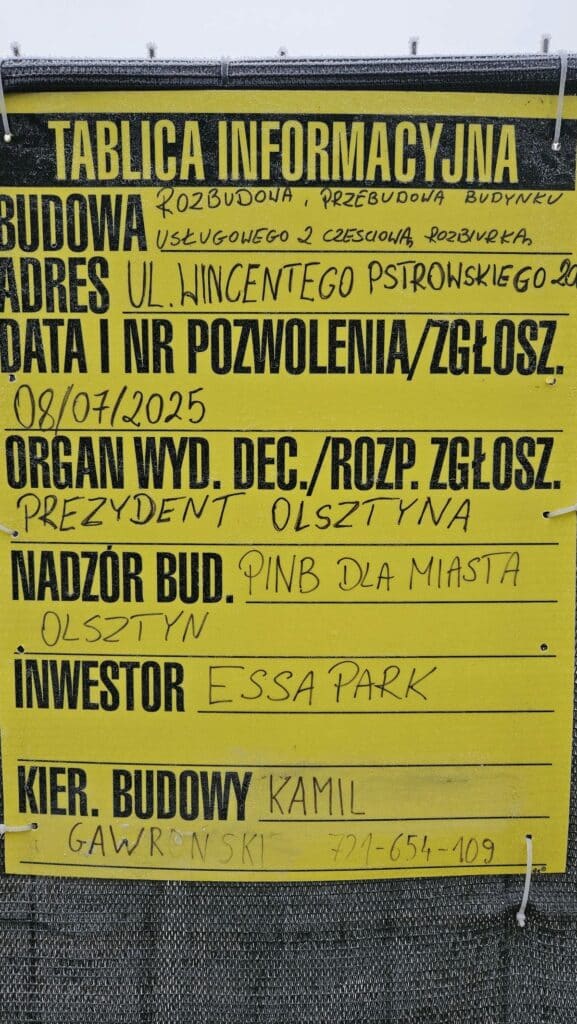 TABLICA INFORMACYJNA
BUDOWA ROZBUDOWA, PRZEBUDOWA BUDYNKU
USŁUGOWEGO Z CZESCIOWĄ ROZBIURKĄ
ADRES UL. WINCENTEGO PSTROWSKIEGO
DATA I NR POZWOLENIA/ZGŁOSZ.
08/07/2025
ORGAN WYD. DEC./ROZP. ZGŁOSZ.
PREZYDENT OLSZTYNA
NADZÓR BUD. PINB DLA MIASTA
OLSZTYN
INWESTOR ESSA PARK
KIER. BUDOWY KAMIL
GAWRONSKI 721-654-109